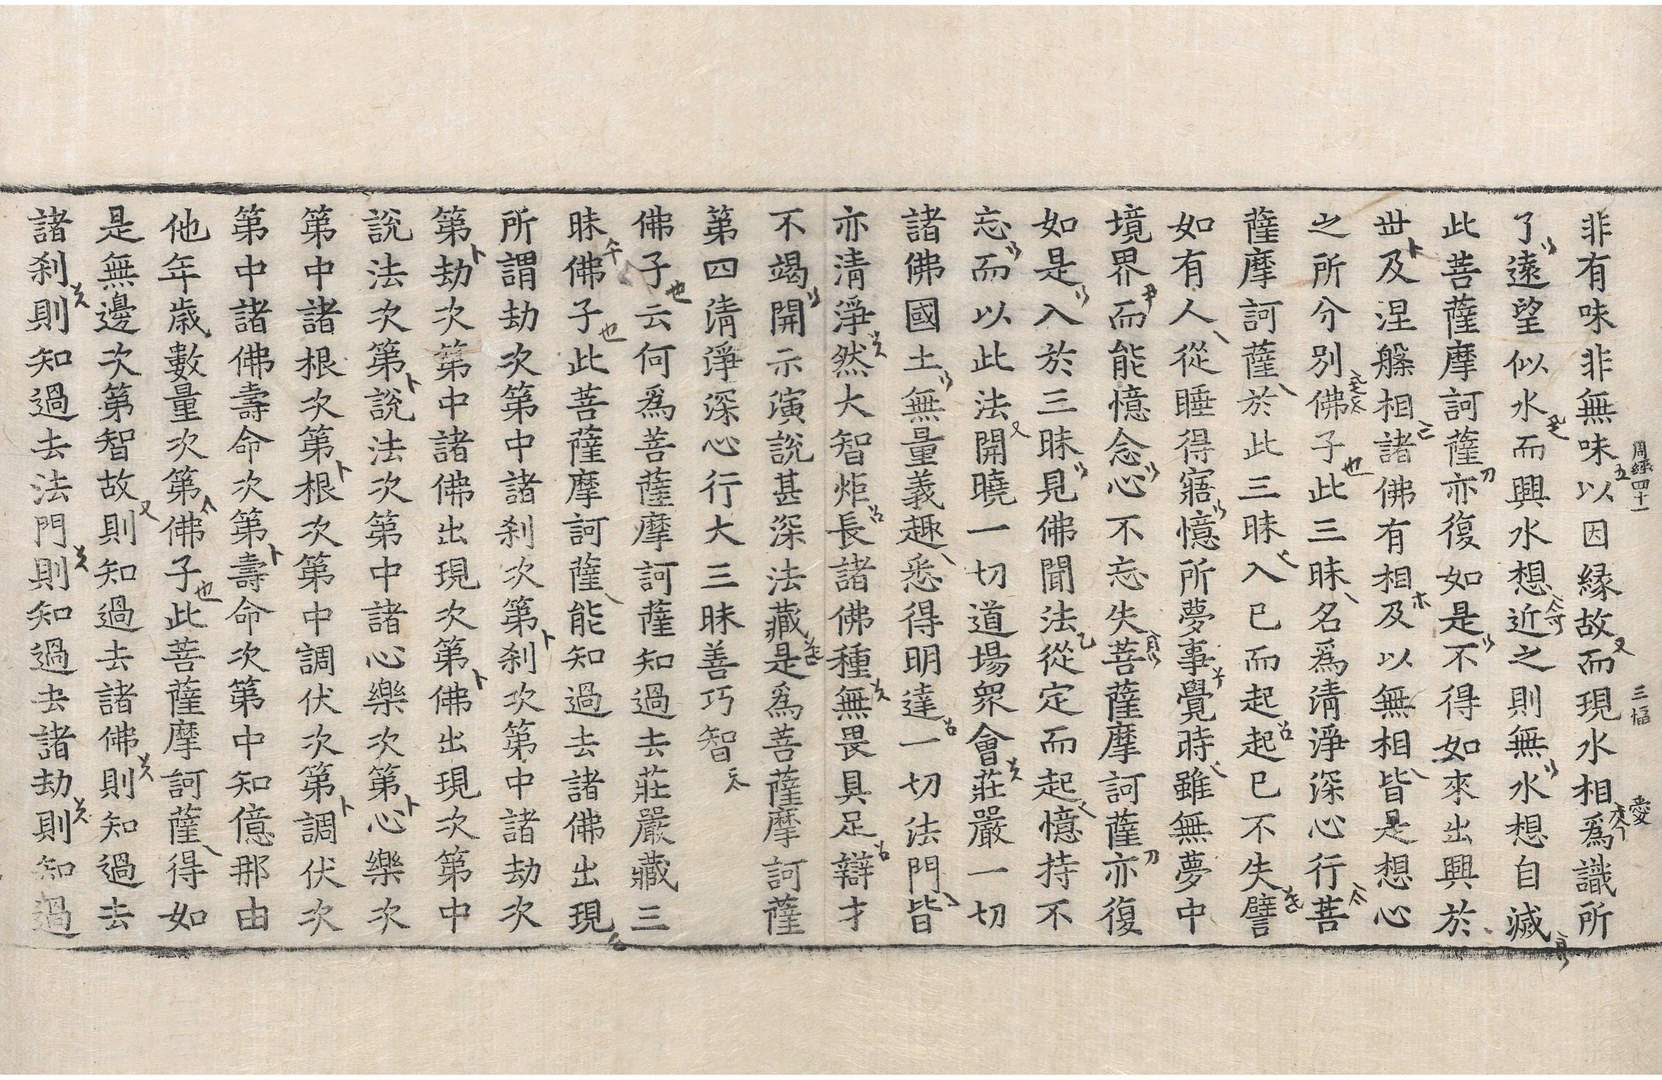 非有味非無味以因縁故而現水相爲識所
了遠望似水而興水想近之則無水想自滅
此菩薩摩訶薩亦復如是不得如來出興於
世及涅槃相諸佛有相及以無相皆是想心
之所分別佛子此三昧名爲清淨深心行菩
薩摩訶薩於此三昧入已而起起已不失譬
如有人從睡得寤憶所夢事覺時雖無夢中
境界而能憶念心不忘失菩薩摩訶薩亦復
如是入於三昧見佛聞法從定而起憶持不
忘而以此法開曉一切道場衆會莊嚴一切
諸佛國土無量義趣悉得明達一切法門皆
亦清淨然大智炬長諸佛種無畏具足辯才
不竭開示演說甚深法藏是爲菩薩摩訶薩
第四清淨深心行大三昧善巧智
佛子云何爲菩薩摩訶薩知過去莊嚴藏三
昧佛子此菩薩摩訶薩能知過去諸佛出現
所謂劫次第中諸刹次第刹次第中諸劫次
第劫次第中諸佛出現次第佛出現次第中
說法次第說法次第中諸心樂次第心樂次
第中諸根次第根次第中調伏次第調伏次
第中諸佛壽命次第壽命次第中知億那由
他年歲數量次第佛子此菩薩摩訶薩得如
是無邊次第智故則知過去諸佛則知過去
諸刹則知過去法門則知過去諸劫則知過